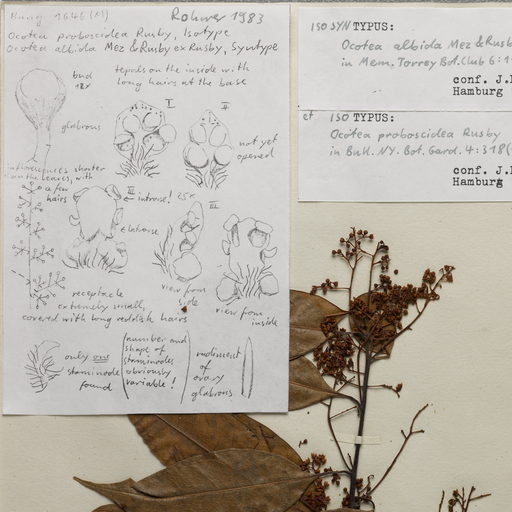 1646 (M) Rohwer 1983
Ocotea proboscidea Rusby, Isotype
Ocotea albida Mez & Rusby ex Rusby, Syntype
bud
12x
tepals on the inside with
long hairs at the base
I
II
glabrous
not yet
opened
inflorescences shorter
than the leaves, with
a few
hairs
III
← introrse! 25x
III
← latrorse
view from
side
view from
inside
receptacle
extremely small,
covered with long reddish hairs
only one
staminode
found
(number and
shape of
staminodes
obviously
variable!)
rudiment
of
ovary
glabrous
ISOSYNTYPUS:
Ocotea albida Mez & Rusb
in Mem. Torrey Bot. Club 6:1
conf. J.
Hamburg
et ISOTYPUS:
Ocotea proboscidea Rusby
in Bull. NY. Bot. Gard. 4:318(
conf. J.
Hamburg